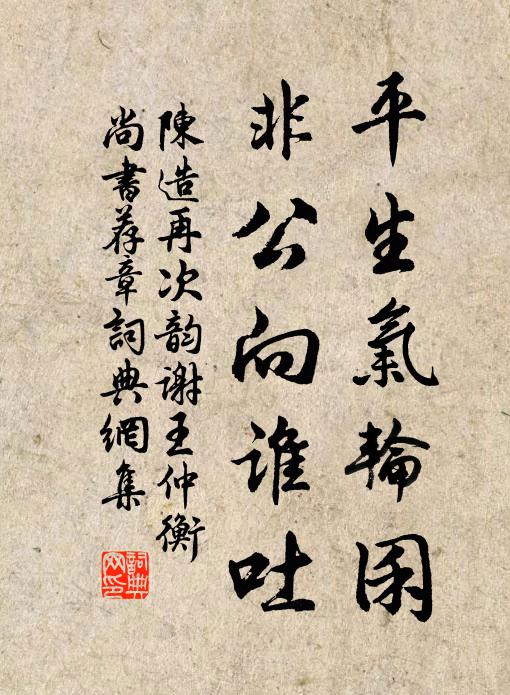 平生氣輪囷
非公向誰吐
陳造再次韵謝王仲衡
尚書荐章詞典網集
詞典網印